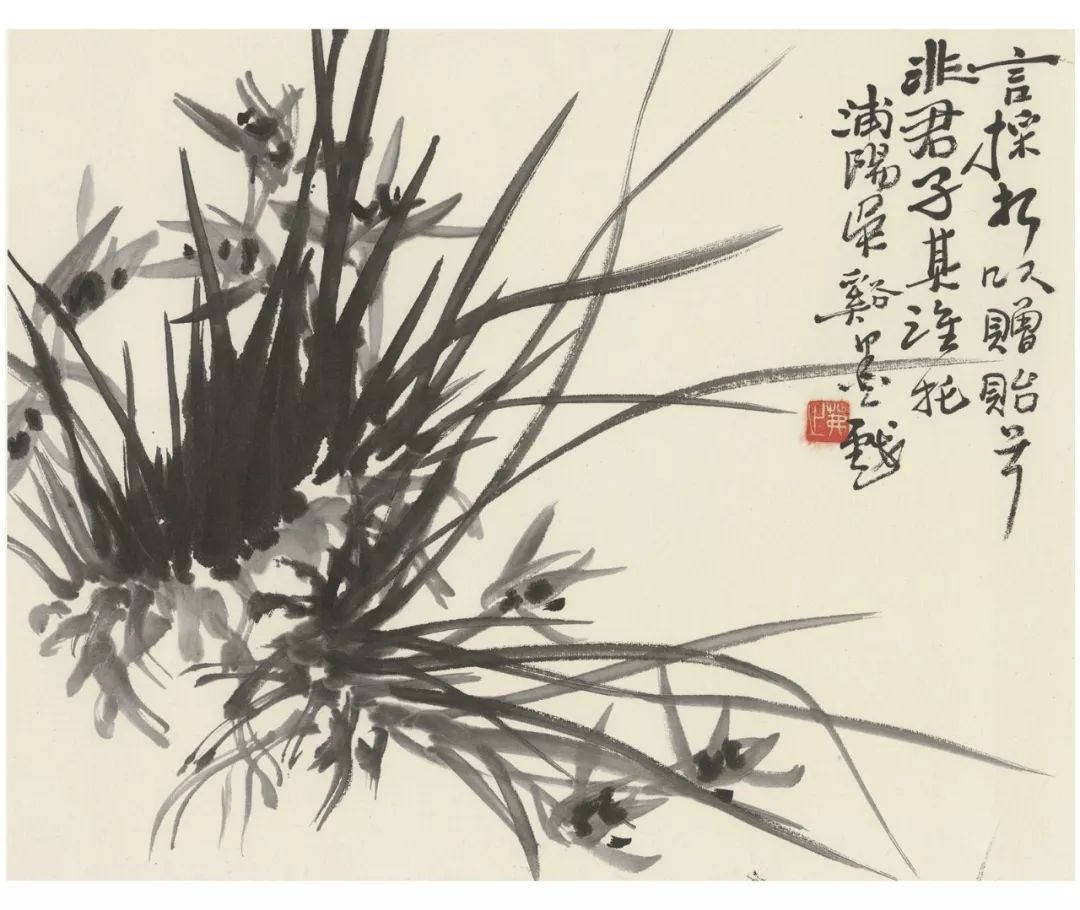 言採折以贈貽兮
非君子其誰托
浦陽吳谿墨戲
茀之